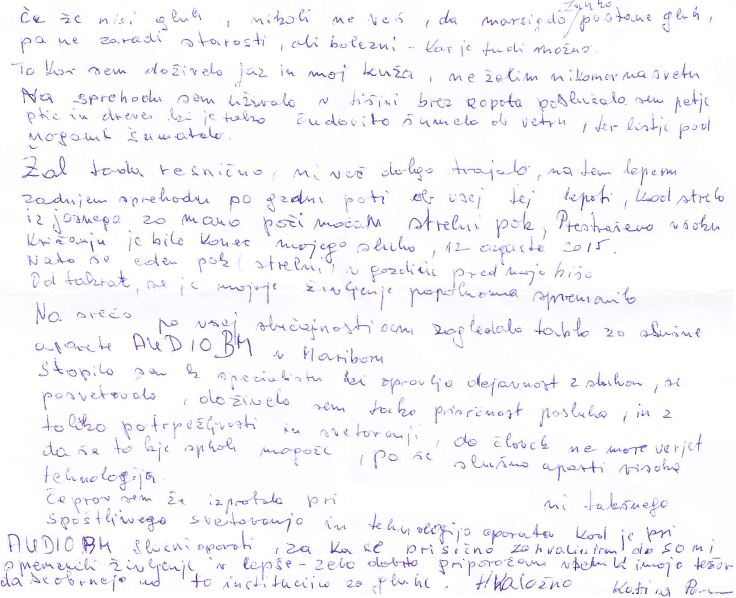 Če že nisi gluh, nikoli ne veš, da marsigdo lahko postane gluh,
pa ne zaradi starosti, ali bolezni - kar je tudi možno.
To kar sem doživela jaz in moj kuža, ne želim nikomor na svetu
Na sprehodu sem uživala v tišini brez ropota poslušala sem petje
ptic in dreves ki je tako čudovito šumela ob vetru, ter listje pod
nogami šumatalo.
Žal toda resnično, ni več dolgo trajalo, na tem lepem
zadnjem sprehodu po gozdni poti ob vsej tej lepoti, kod strela
iz jasnega za mano poči močan strelni pok, Prestrašena v šoku
Križanju je bilo konec mojega sluha, 12 avgusta 2015.
Nato še eden pok (strelni) v gozdiču pred mojo hišo
Od takrat, se je moje življenje popolnoma spremenilo
Na srečo po vsej slučajnosti sem zagledala tablo za slušne
aparate AUDIO BM v Mariboru
Stopila sem k specialistu ki opravlja dejavnost z sluhom, se
posvetovala, doživela sem tako prisrčnost posluha, in z
toliko potrpežljivosti in svetovanji, da človek ne more verjet
da še to kje sploh mogoče, pa še slušno aparti visoka
tehnologija.
Čeprav sem že izprobala pri ni takšnega
spoštljivega svetovanja in tehnologija aparatov kod je pri
AUDIO BM slušni aparati, za ka se prisrčno zahvaljujem da so mi
spremenili življenje v lepše - zelo dobro priporočam vsem ki imajo težave
da se obrnejo na to institucijo za gluhe. Hvaležno